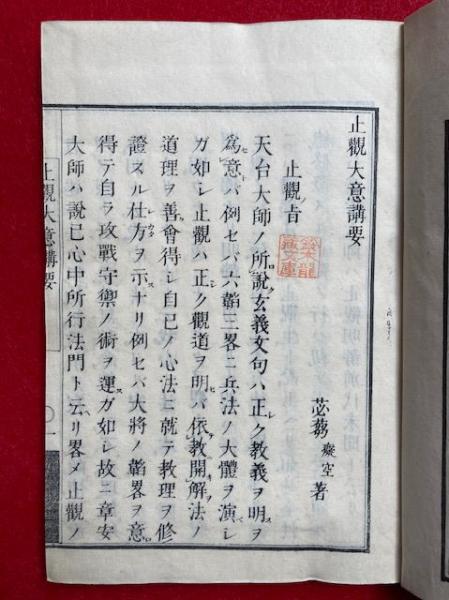 止觀大意講要
苾蒭癡空著
止觀ノ旨
天台大師ノ所說玄義文句ハ正ク教義ヲ明スヲ
爲意例セバ六韜三畧ニ兵法ノ大體ヲ演
ガ如シ止觀ハ正ク觀道ヲ明依教開解法ノ
道理ヲ善會得シ自己ノ心法ニ就テ教理ヲ修
證スル仕方ヲ示スナリ例セバ大將ノ韜畧ヲ意
得テ自ラ攻戰守禦ノ術ヲ運スガ如シ故ニ章安
大師ハ說己心中所行法門ト云リ畧メ止觀ノ
止觀大意講要
〇一